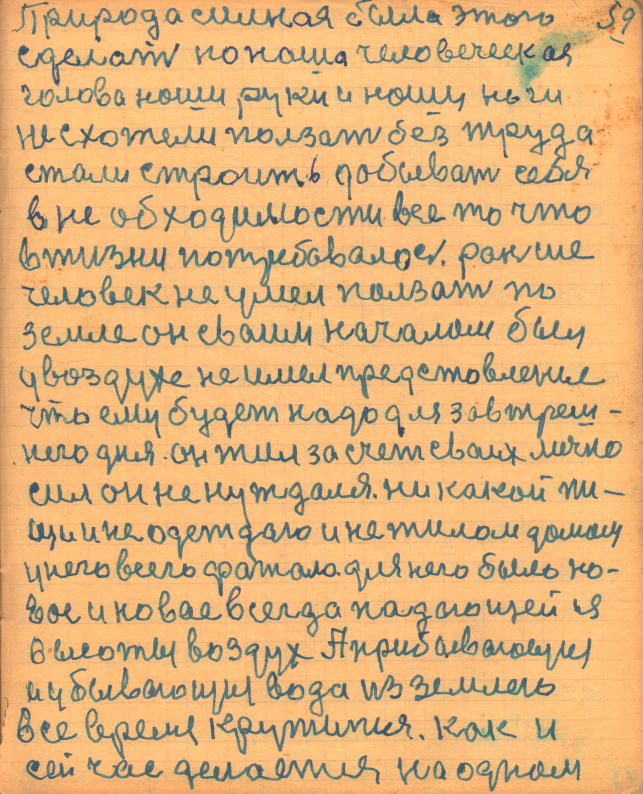 Природа силная была этого 59
сделат но наша человеческая
голова наши руки и нашы ноги
не схотели ползат без труда
стали строить добыват себя
в не обходимости все то что
в жизни потребовалос. ранше
человек не умел ползат по
земле он сваим началом был
у воздухе не имел предстовления
что ему будет надо для завтреш-
него дня. он жил за счет сваих лично
сил он не нуждался. ни какой пи-
щи и не одеждаю и не жилом домом
у него всего фатало. для него было но-
вое и новае всегда падающей ся
высоты воздух А прибывающия
и убывающия вода из землею
все время кружился. как и
сей час делается на одном